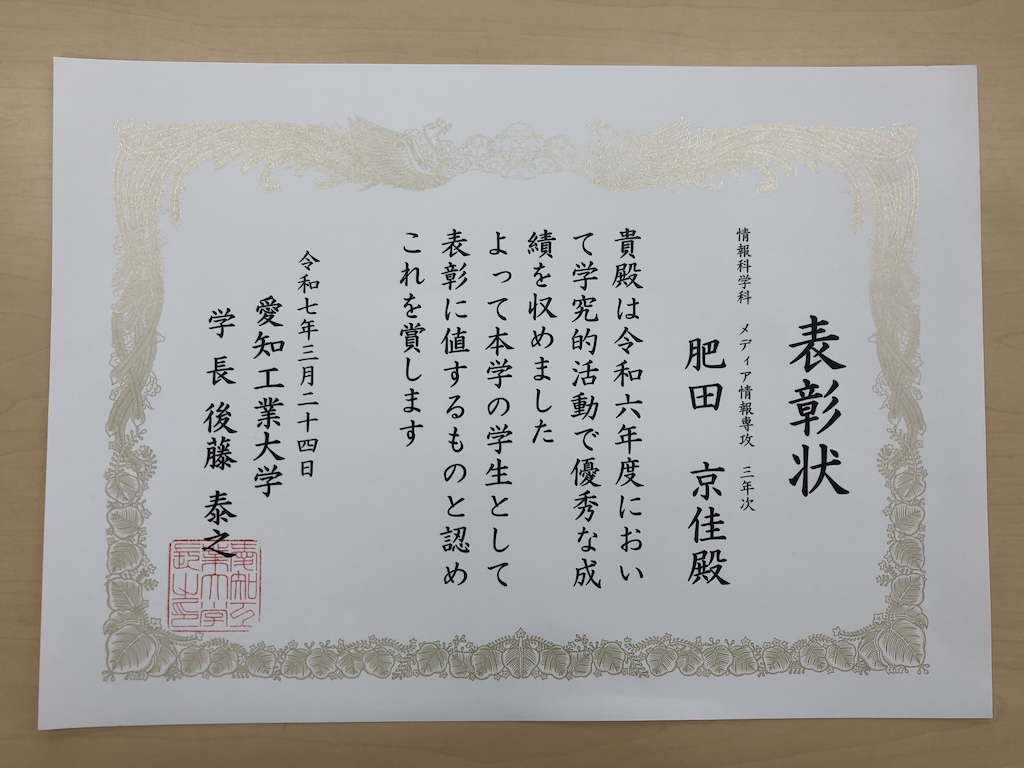 表彰状
情報科学科 メディア情報専攻 三年次
肥田 京佳殿
貴殿は令和六年度におい
て学究的活動で優秀な成
績を収めました
よって本学の学生として
表彰に値するものと認め
これを賞します
令和七年三月二十四日
愛知工業大学
学長 後藤 泰之
愛知工
業大学
長之印